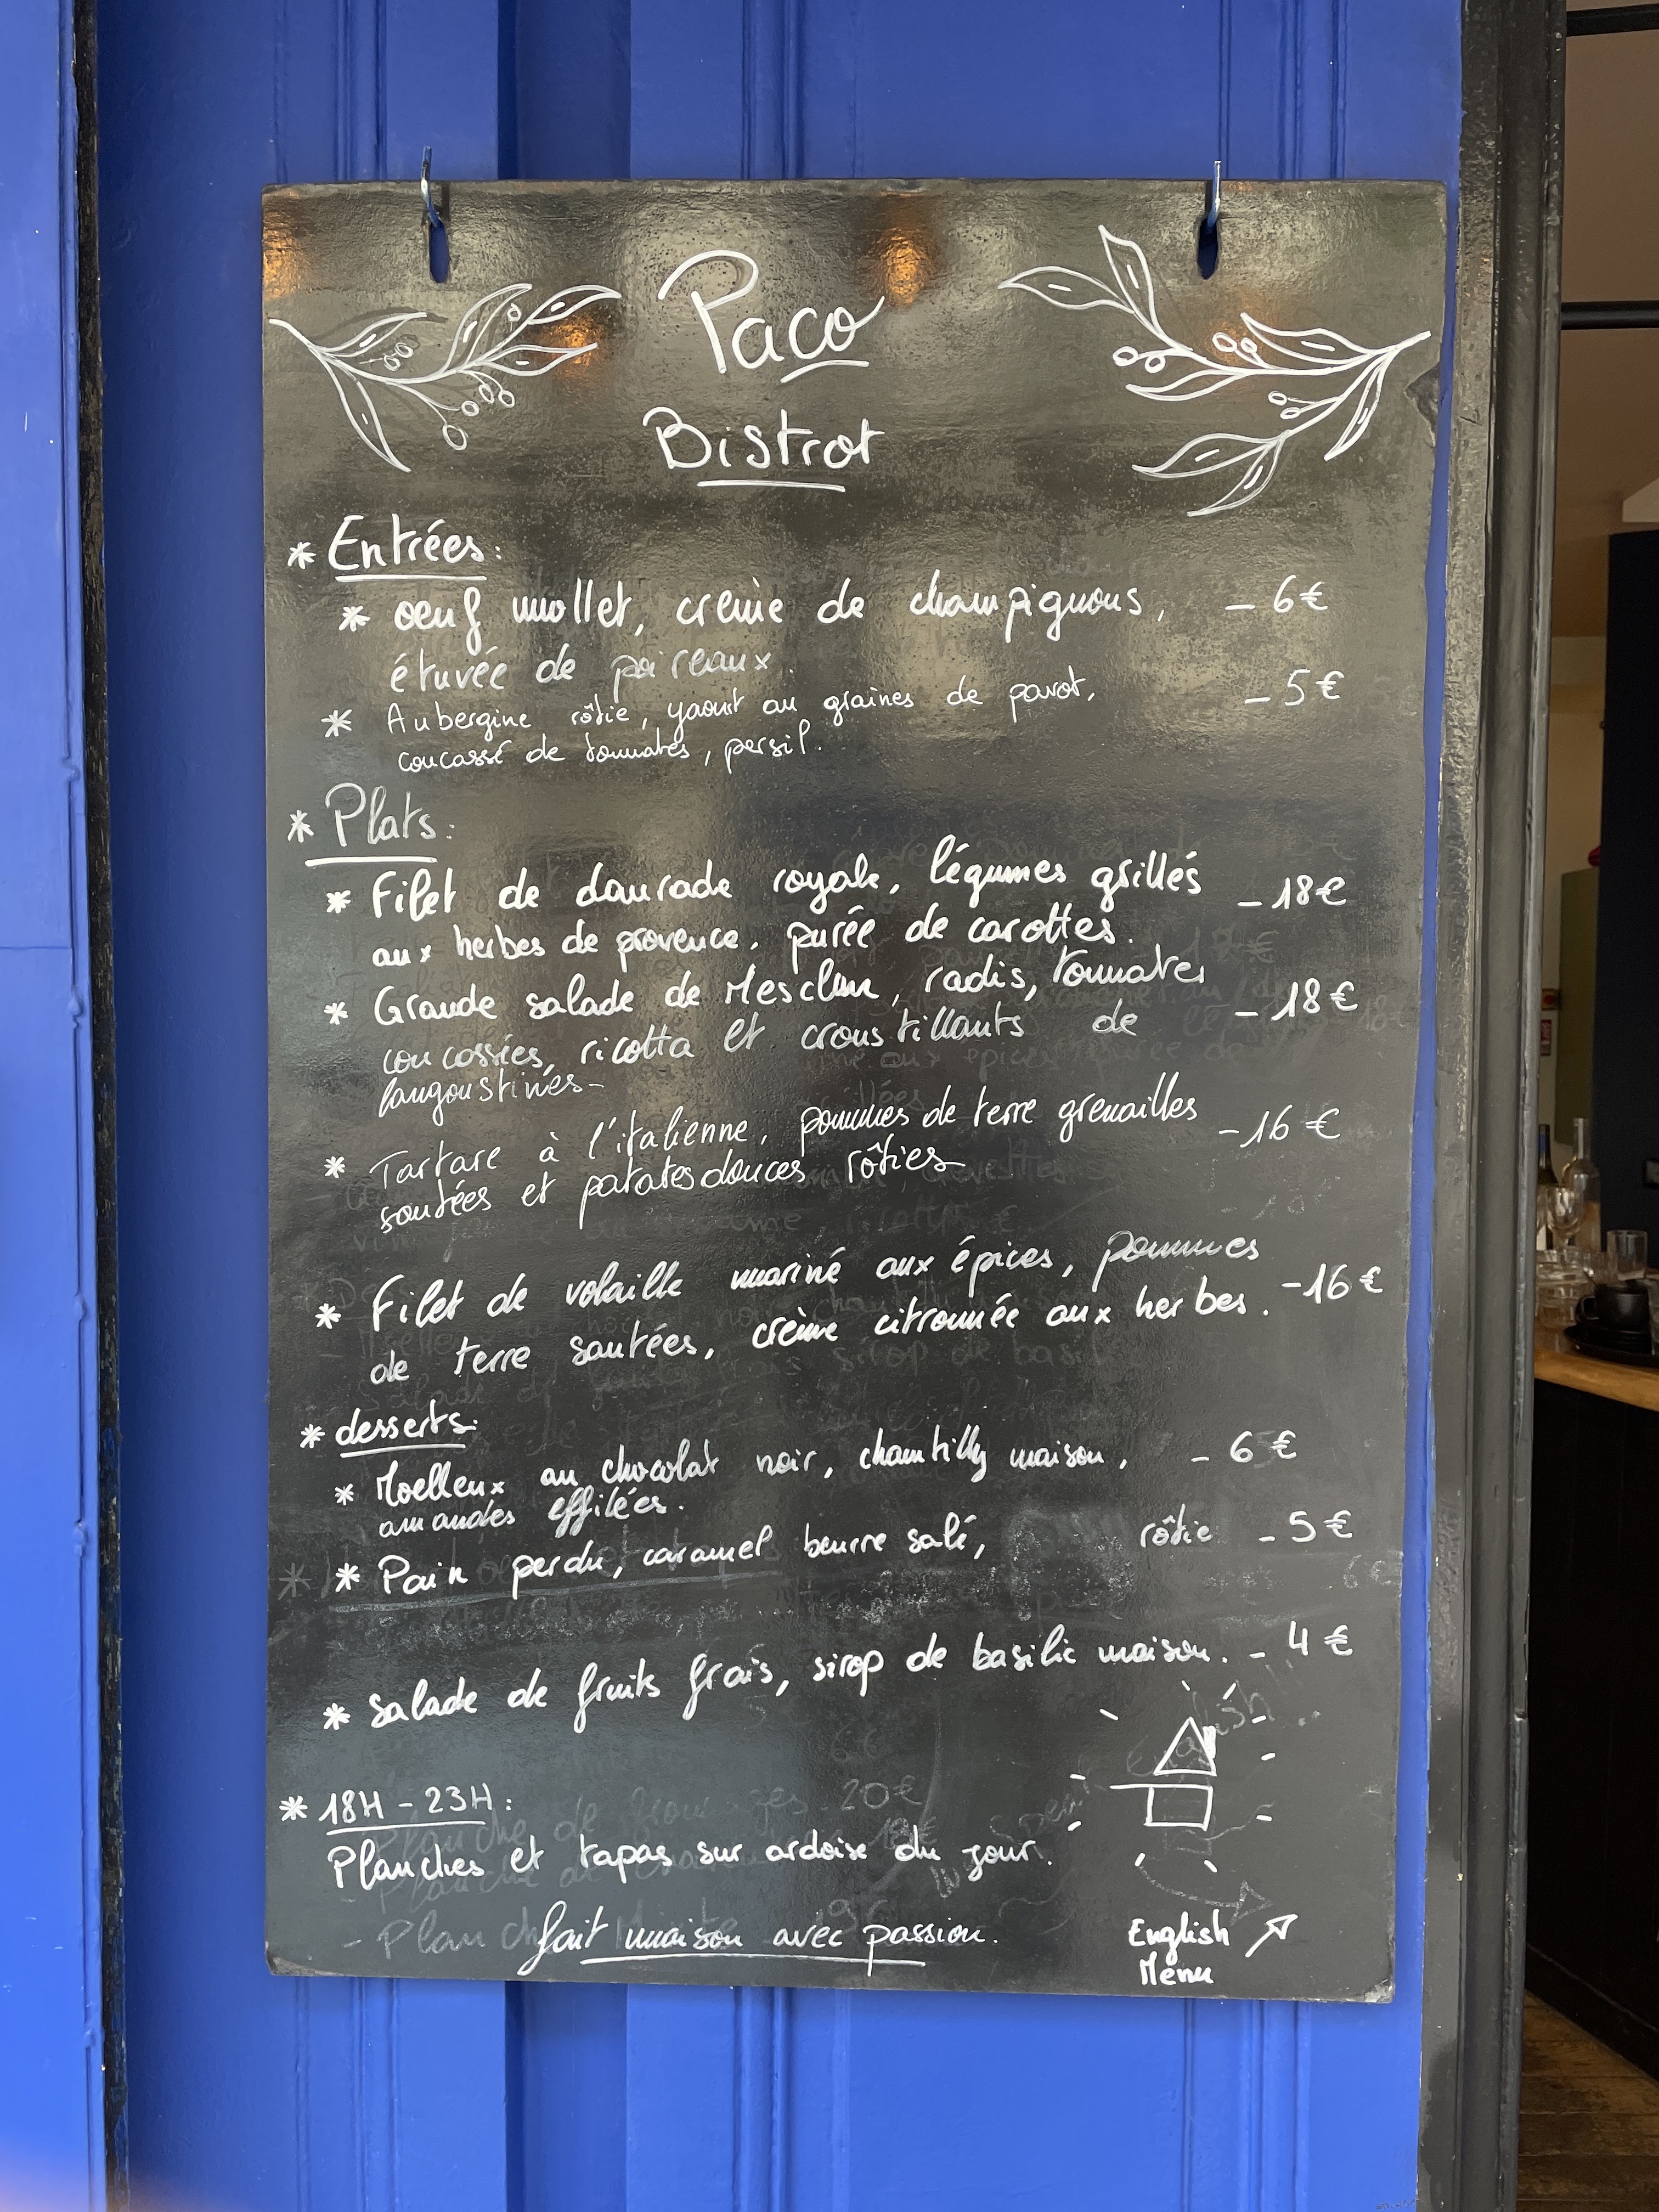 Paco
Bistrot
* Entrées:
* oeuf mollet, crème de champignons, - 6€
étuvée de poireaux.
* Aubergine rôtie, yaourt au graines de pavot, - 5€
concassé de tomates, persil.
* Plats:
* Filet de daurade royale, légumes grillés - 18€
aux herbes de provence, purée de carottes.
* Grande salade de Mesclun, radis, tomates - 18€
concassées, ricotta et croustillants de
langoustines-
* Tartare à l'italienne, pommes de terre grenailles - 16€
sautées et patates douces rôties-
* Filet de volaille mariné aux épices, pommes
de terre sautées, crème citronnée aux herbes. - 16€
* desserts:
* Moelleux au chocolat noir, chantilly maison, - 6€
amandes effilées.
* Pain perdu, caramel beurre salé, rôtie - 5€
* Salade de fruits frais, sirop de basilic maison. - 4€
* 18H - 23H:
Planches et tapas sur ardoise du jour.
fait maison avec passion.
English
Menu